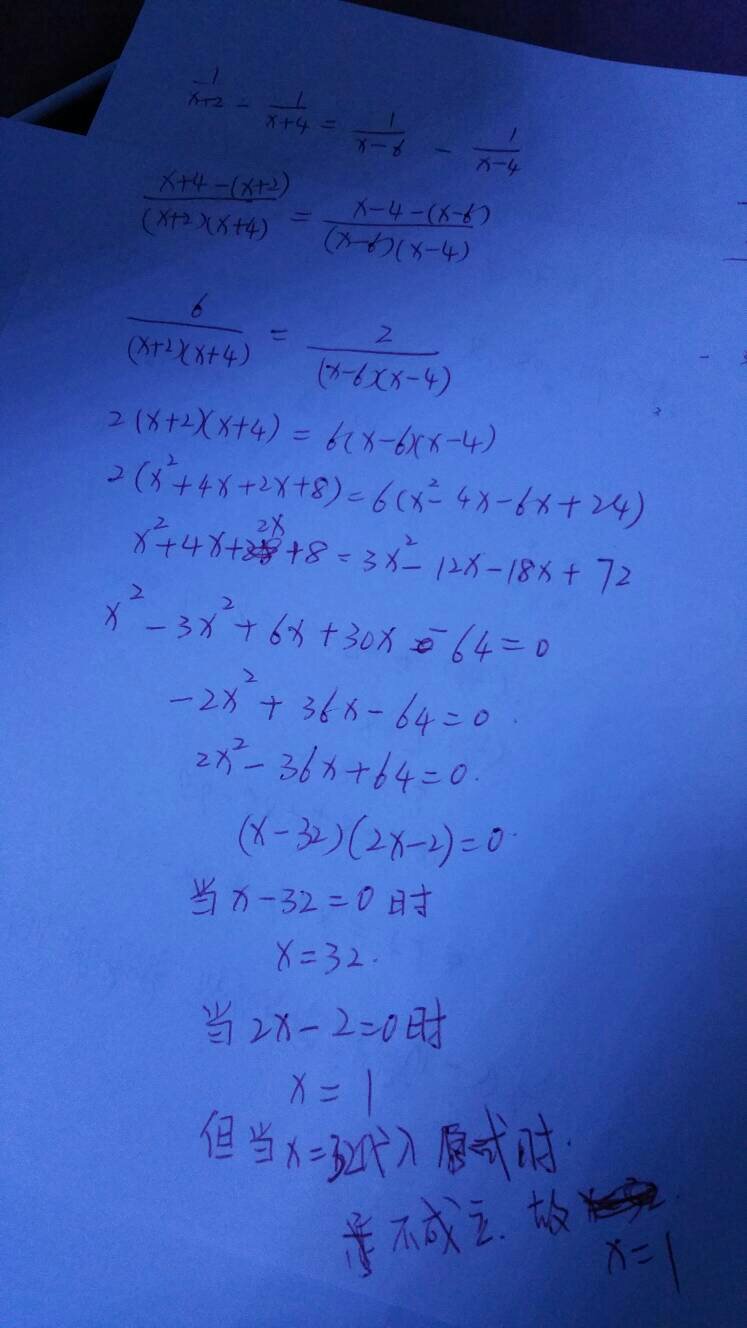 1/(x+2) - 1/(x+4) = 1/(x-6) - 1/(x-4)
(x+4-(x+2))/((x+2)(x+4)) = (x-4-(x-6))/((x-6)(x-4))
6/((x+2)(x+4)) = 2/((x-6)(x-4))
2(x+2)(x+4)=6(x-6)(x-4)
2(x²+4x+2x+8)=6(x²-4x-6x+24)
x²+4x+2x+8=3x²-12x-18x+72
x²-3x²+6x+30x-64=0
-2x²+36x-64=0.
2x²-36x+64=0.
(x-32)(2x-2)=0.
当x-32=0时
x=32.
当2x-2=0时
x=1
但当x=32代入原式时.
不成立.故
x=1